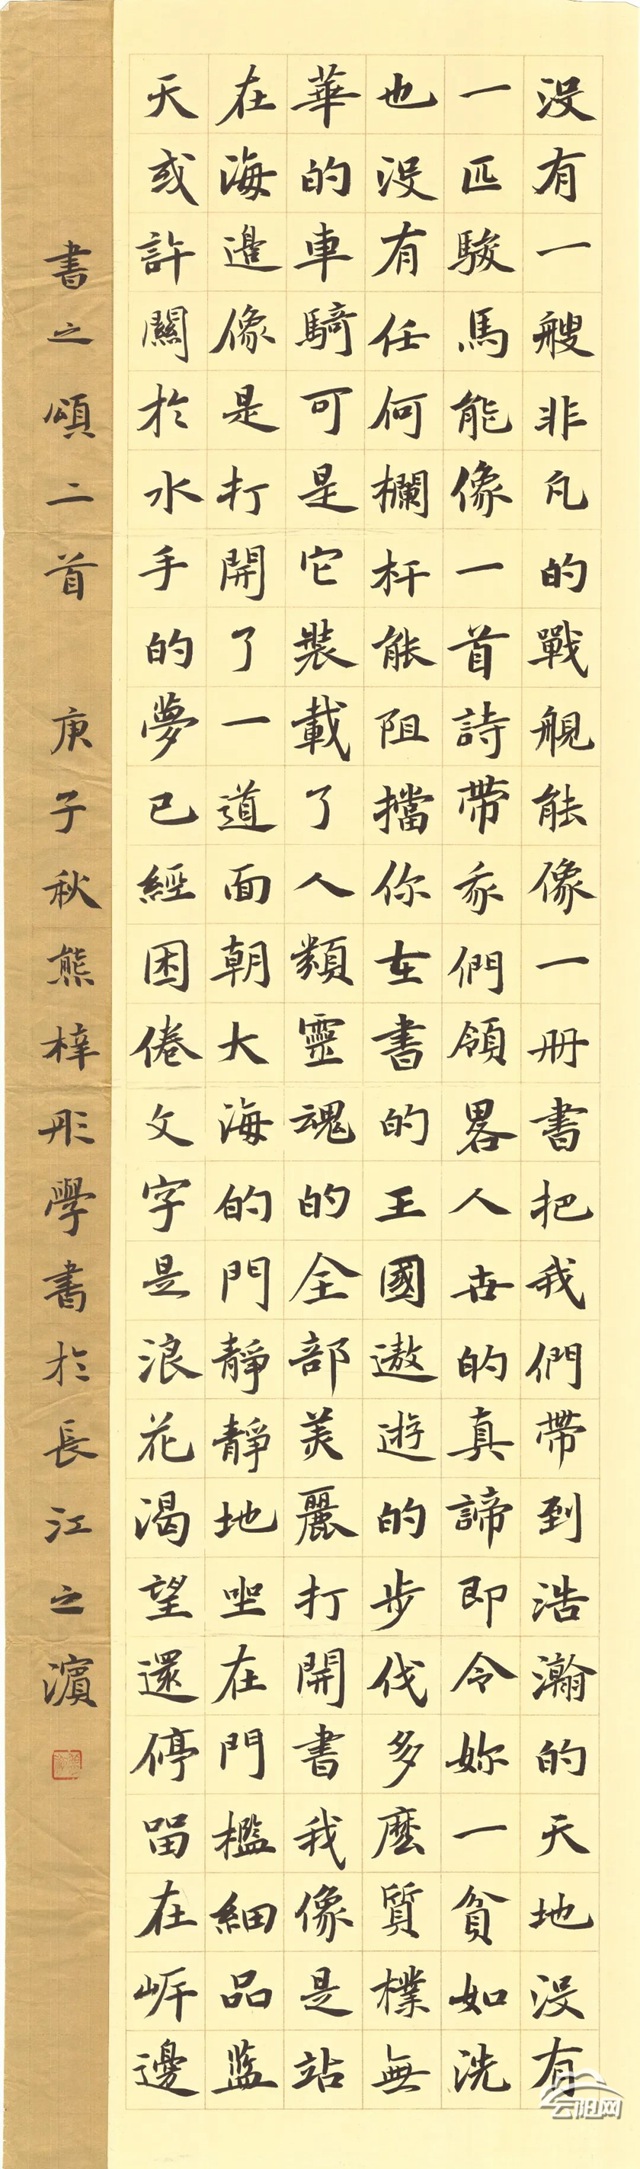 没有一艘非凡的戰舰能像一册書把我們帶到浩瀚的天地没有
一匹駿馬能像一首詩帶我們領畧人世的真諦即令妳一貧如洗
也没有任何欄杆能阻擋你在書的王國遨遊的步伐多麽質樸無
華的車騎可是它裝載了人類靈魂的全部美麗打開書我像是站
在海邊像是打開了一道面朝大海的門靜靜地坐在門檻細品監
天或許關於水手的夢已經困倦文字是浪花渴望還停留在岸邊
書之頌二首 庚子秋熊梓彤學書於長江之濱
云阳网